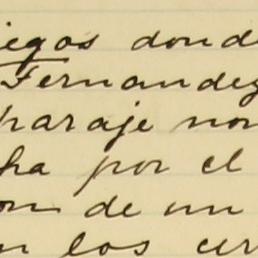 iegos dond
Fernandez
paraje nom
ha por el
on de un
n los cer